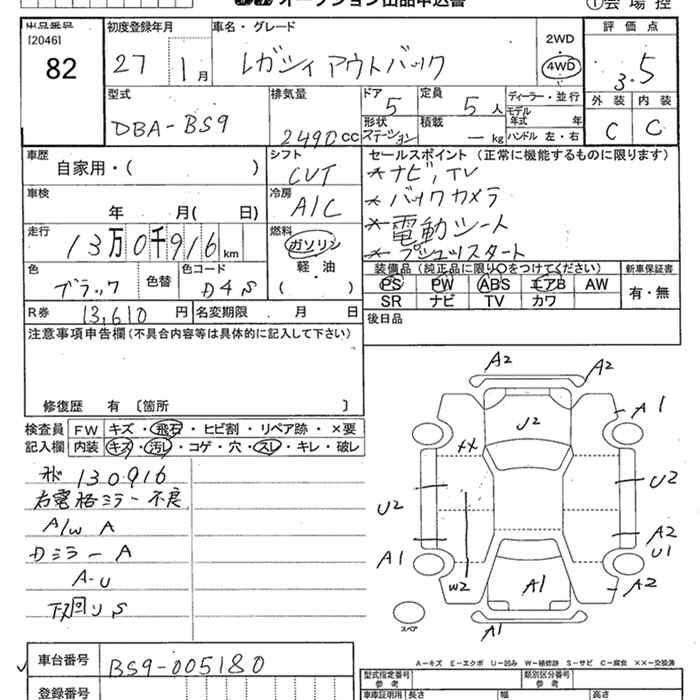 オークション出品申込書 ①会場控
出品番号 初度登録年月 車名・グレード 評価点
[2046] 2WD
82 27 1月 レガシィ アウトバック 4WD 3.5
型式 排気量 ドア 定員 ディーラー・並行 外装 内装
DBA-BS9 2490cc 5 5人 モデル年式 年 C C
形状 積載 ハンドル 左・右
ステーション ーkg
車歴 シフト セールスポイント (正常に機能するものに限ります)
自家用・( ) CVT *ナビ,TV
車検 冷房 *バックカメラ
年 月( 日) A/C *電動シート
走行 燃料 *プッシュスタート
13万0千916km ガソリン
軽・油
( ・ )
色 色替 色コード 装備品(純正品に限り○をつけてください) 新車保証書
ブラック D4S PS PW ABS エアB AW 有・無
SR ナビ TV カワ
R券 13,610円 名変期限 月 日 後日品
注意事項申告欄(不具合内容等は具体的に記入して下さい)
修復歴 有 〔箇所 〕
検査員 FW キズ・飛石・ヒビ割・リペア跡・×要
記入欄 内装 キズ・汚レ・コゲ・穴・スレ・キレ・破レ
130916
右電格ミラー不良
A/W A
Dミラー A
A-U
下回りS
A2 A2
A1 U2 A1
XX
U2 U2
A2
A1 U1
W2 A1 A2
スペア A1
A-キズ E-エクボ U-凹み W-補修跡 S-サビ C-腐食 XX-交換済
車台番号 BS9-005180
登録番号
型式指定番号 類別区分番号
参考 参考
車庫証明用 長さ 幅 高さ